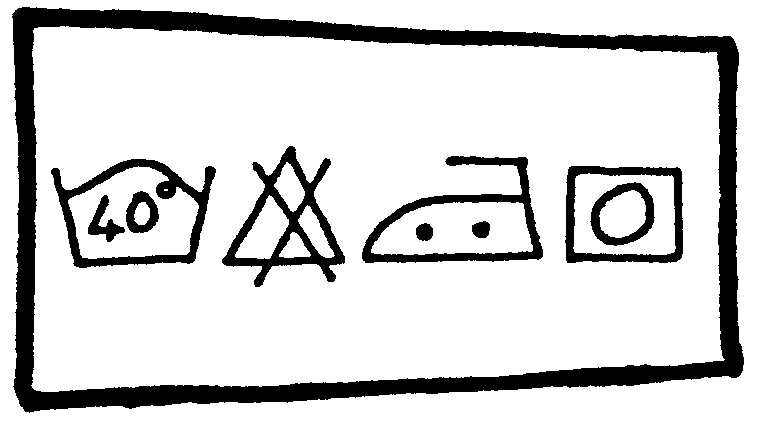 40°